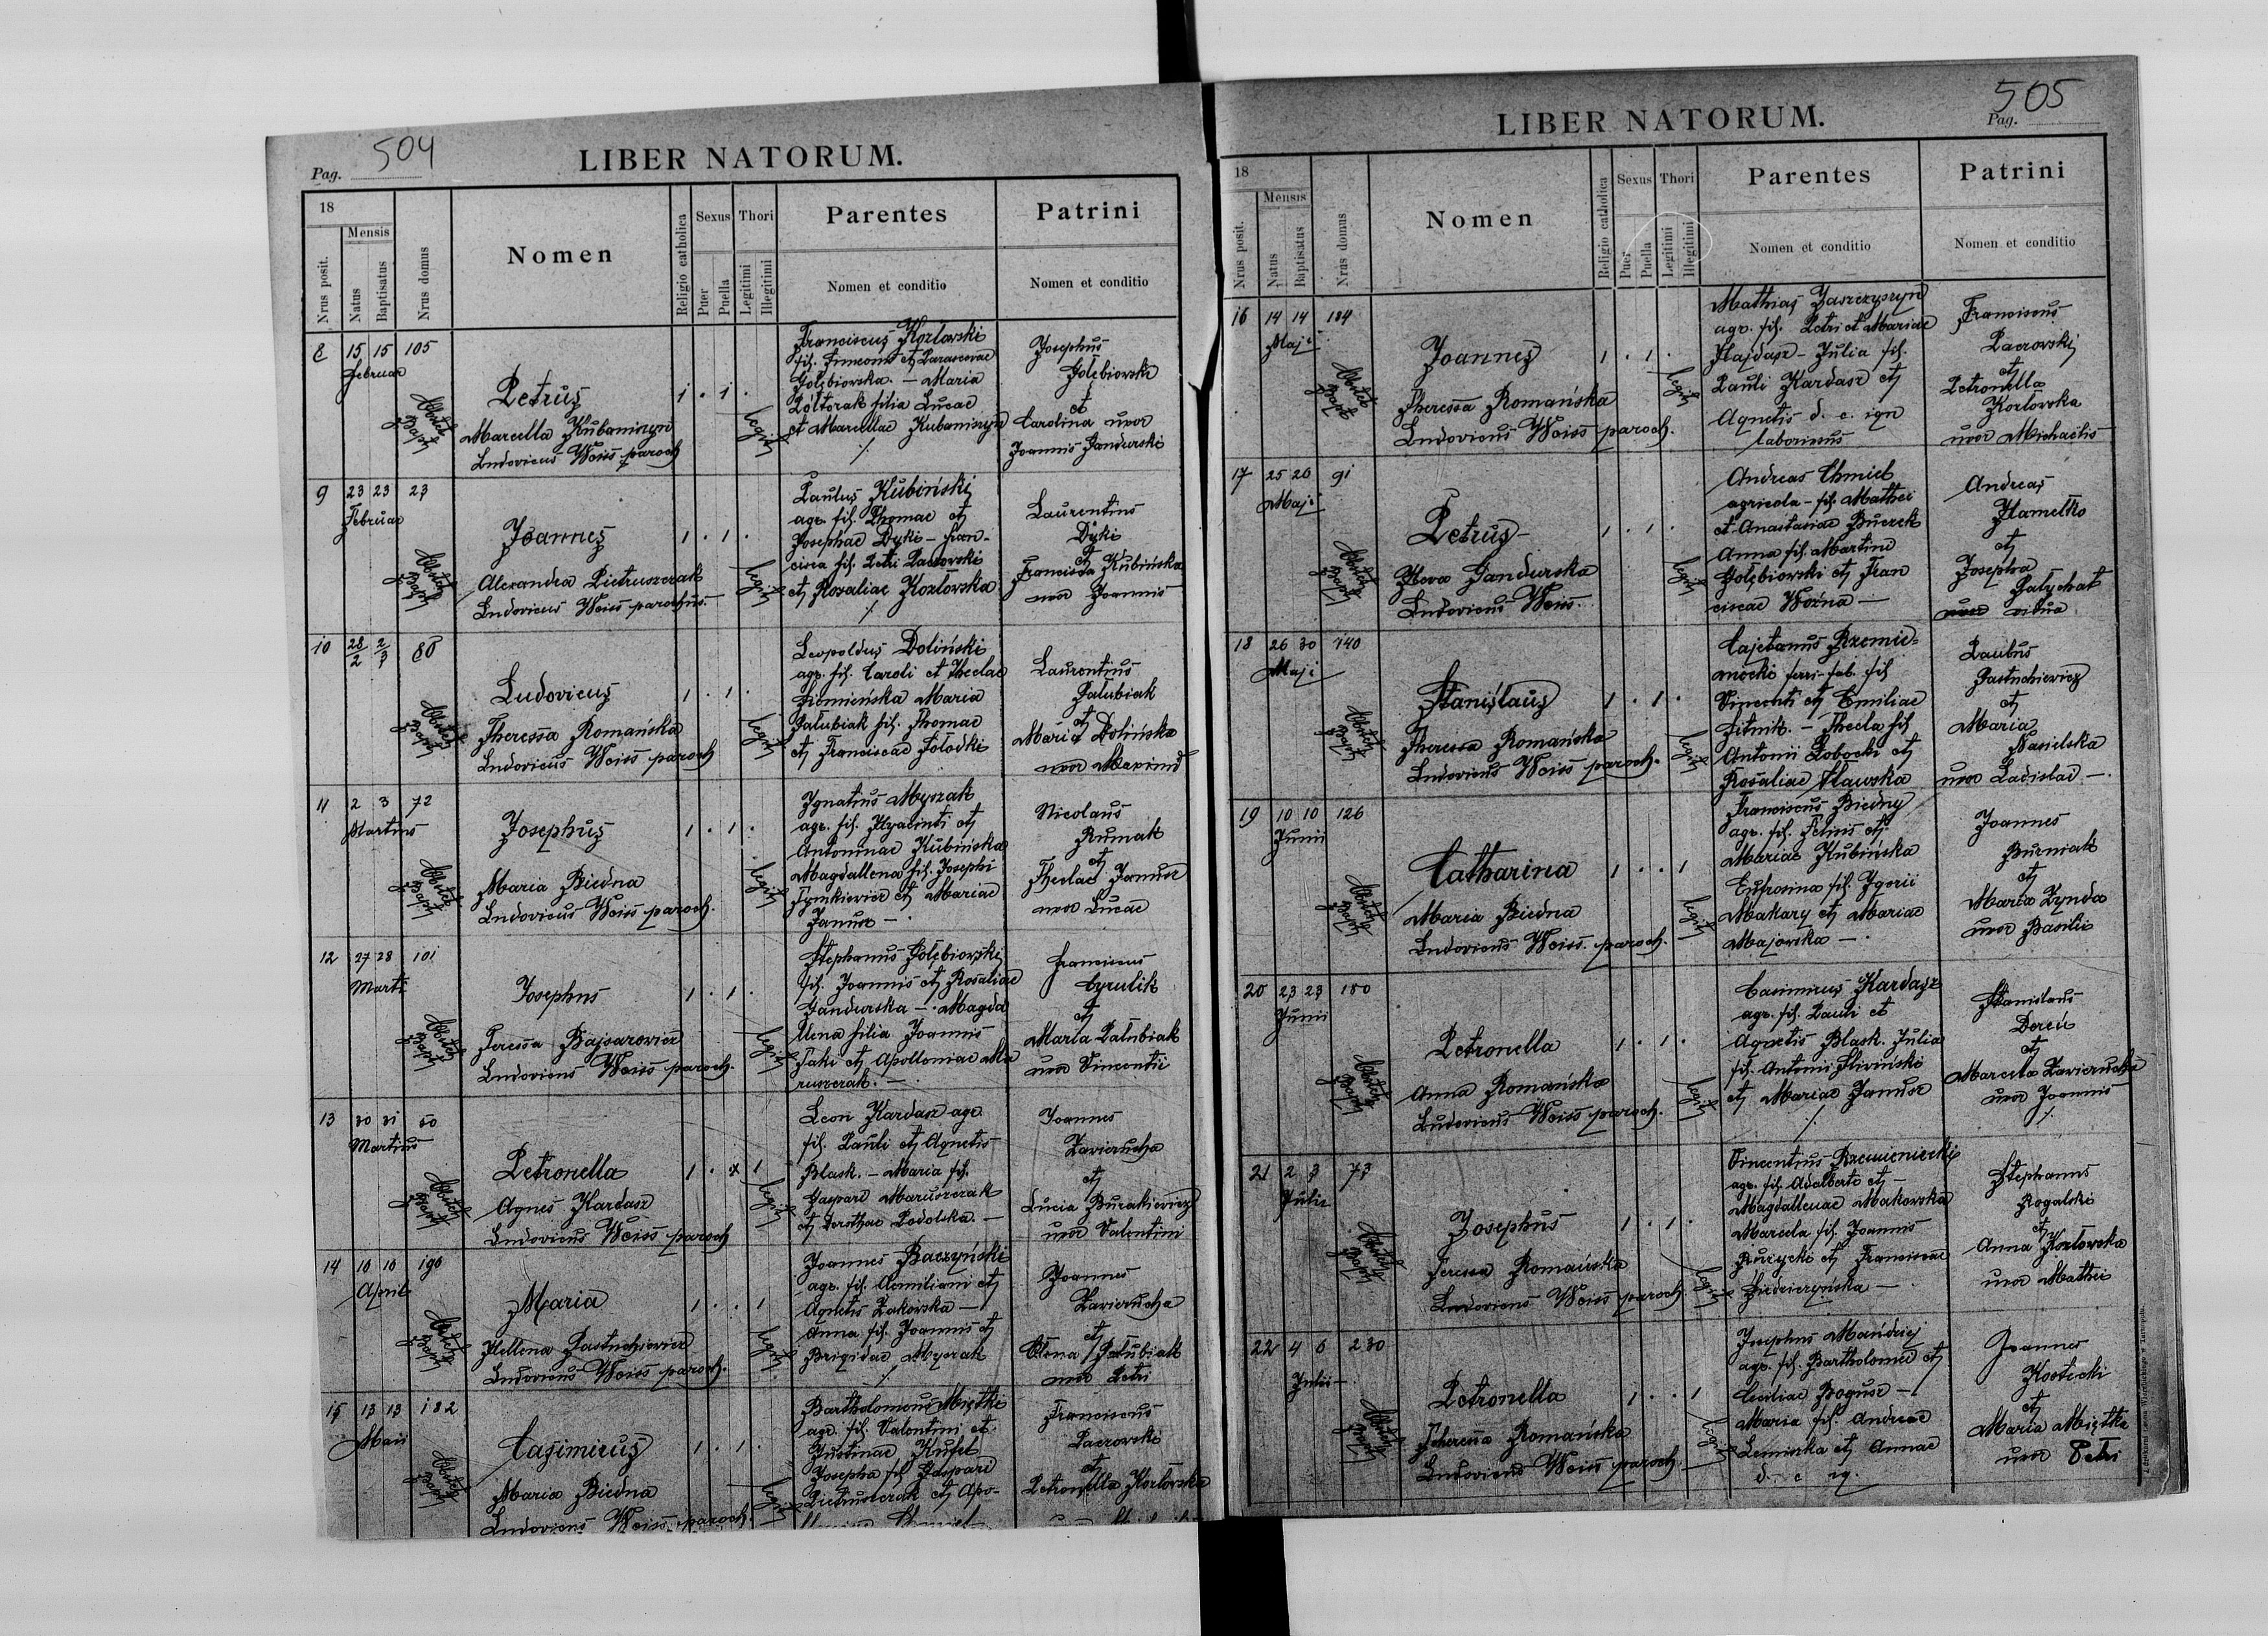 Pag. 504
LIBER NATORUM.
18
Mensis
Nrus posit.
Natus
Baptisatus
Nrus domus
Nomen
Religio catholica
Sexus
Puer
Puella
Thori
Legitimi
Illegitimi
Parentes
Nomen et conditio
Patrini
Nomen et conditio
8 15 15 105
Februar
Petrus
1 . 1 .
Obstetr
Bapt
Marcella Kubaniszyn
Ludovicus Weiss paroch
legit
Franciscus Kozlowski
fil. Simeonis et Parascevae
Gołębiowska. — Maria
Półtorak filia Lucae
et Marcellae Kubaniszyn
Josephus
Gołębiowski
et
Carolina uxor
Joannis Gandurski
9 23 23 23
Februar
Joannes
1 . 1 .
Alexandra Pietruszczak
Ludovicus Weiss parochus.
legit
Paulus Kubiński
agr. fil. Thomae et
Josephae Dyki — Fran-
cisca fil. Petri Pacrowski
et Rosaliae Kozłowska
Laurentius
Dyki
et
Francisca Kubińska
uxor Joannis
10 28/2 2/3 80
Ludovicus
1 . 1 .
Theressa Romańska
Ludovicus Weiss paroch
legit
Leopoldus Doliński
agr. fil. Caroli et Theclae
Ziemieńska Maria
Pałubiak fil. Thomae
et Franciscae Zołodki
Laurentius
Pałubiak
et
Maria Dolińska
uxor
11 2 3 72
Martius
Josephus
1 . 1 .
Maria Biedna
Ludovicus Weiss paroch.
legit
Ignatius Myszak
agr. fil. Hyacinti et
Antoninae Kubińska
Magdallena fil. Josephi
et Mariae
Janusz —
Nicolaus
Rumak
et
Theclae Janusz
uxor Lucae
12 27 28 101
Marti
Josephus
1 . 1 .
Teressa Bajsarowicz
Ludovicus Weiss paroch.
legit
Stephanus Gołębiowski
fil. Joannis et Rosaliae
Gandurska — Magda
llena filia Joannis
Taki et Apolloniae Ma
ruszczak. —
Franciscus
Cyrulik
et
Maria Pałubiak
uxor Vincentii
13 30 31 50
Martius
Petronella
1 . x 1
Agnes Kardasz
Ludovicus Weiss paroch
legit
Leon Kardasz agr.
fil. Pauli et Agnetis
Blask. — Maria fil.
Gaspari Maruszczak
et Dorothae Podolska. —
Joannes
Zawierucha
et
Lucia Burakiewicz
uxor Valentini
14 10 10 190
April
Maria
1 . . 1
Hellena Pastuchiewicz
Ludovicus Weiss paroch.
legit
Joannes Baczyński
agr. fil. Aemiliani et
Agnetis Zakowska —
Anna fil. Joannis et
Brigidae Myszak
Joannes
Zawierucha
et
Olena Pałubiak
uxor Petri
15 13 13 182
Maii
Casimirus
1 . 1 .
Maria Biedna
Ludovicus Weiss paroch.
legit
Bartholomeus Miętki
agr. fil. Valentini et
Justinae Kufel
Josepha fil. Gaspari
Pietruszczak et Apo-
Franciscus
Pacrowski
et
Petronella Kozłowska
Pag. 505
LIBER NATORUM.
18
Mensis
Nrus posit.
Natus
Baptisatus
Nrus domus
Nomen
Religio catholica
Sexus
Puer
Puella
Thori
Legitimi
Illegitimi
Parentes
Nomen et conditio
Patrini
Nomen et conditio
16 14 14 184
Maji
Joannes
1 . 1 .
Theressa Romańska
Ludovicus Weiss paroch.
legit
Mathias Jaszczyszyn
agr. fil. Petri et Mariae
Hajdasz — Julia fil.
Pauli Kardasz et
Agnetis d. c. ign
laboriosus
Franciscus
Pacrowski
et
Petronella
Kozłowska
uxor Michaelis
17 25 26 91
Maji
Petrus —
1 . 1 .
Heva Gandurska
Ludovicus Weiss.
legit
Andreas Chmiel
agricola — fil. Mathei
et Anastasiae Buczek
Anna fil. Martini
Gołębiowski et Fran
ciscae Woźna —
Andreas
Hamelko
et
Josepha
Pałychat
uxor vidua
18 26 30 140
Maji
Stanislaus
1 . 1 .
Theressa Romańska
Ludovicus Weiss paroch.
legit
Cajetanus Rzemie=
niecki ferri-fab. fil
Vincenti et Emiliae
Zitnik. — Thecla fil.
Antonii Łobocki et
Rosaliae Hławska
Paulus
Pastuchiewicz
et
Maria
Nasielska
uxor Ladislai —.
19 10 10 126
Junii
Catharina
1 . . 1
Maria Biedna
Ludovicus Weiss. paroch.
legit
Franciscus Biedny
agr. fil. Felixis et
Mariae Kubińska
Eufrosina fil. Igorii
Makary et Mariae
Majowska —.
Joannes
Burniak
et
Maria Rynda
uxor Basilii
20 23 23 180
Junii
Petronella
1 . 1 .
Anna Romańska
Ludovicus Weiss paroch.
legit
Casimirus Kardasz
agr. fil. Pauli et
Agnetis Blask. Julia
fil. Antonii Śliwiński
et Mariae Janusz
Stanislaus
Dereń
et
Marcela Zawierucha
uxor Joannis
21 2 3 73
Julii
Josephus
1 . 1 .
Teressa Romańska
Ludovicus Weiss paroch.
legit
Vincentius Rzemieniecki
agr. fil. Adalberti et —
Magdallenae Makowska
Marcela fil. Joannis
Rurycki et Franciscae
Stephanus
Rogalski
et
Anna Kozłowska
uxor Mathei
22 4 6 230
Julii —
Petronella
1 . . 1
Theressa Romańska
Ludovicus Weiss paroch.
legit
Josephus Mandziej
agr. fil. Bartholomei et
Ceciliae Bogusz —
Maria fil. Andreae
Lemiszka et Annae
d. c ig.
Joannes
Kostecki
et
Maria Miętka
uxor Petri